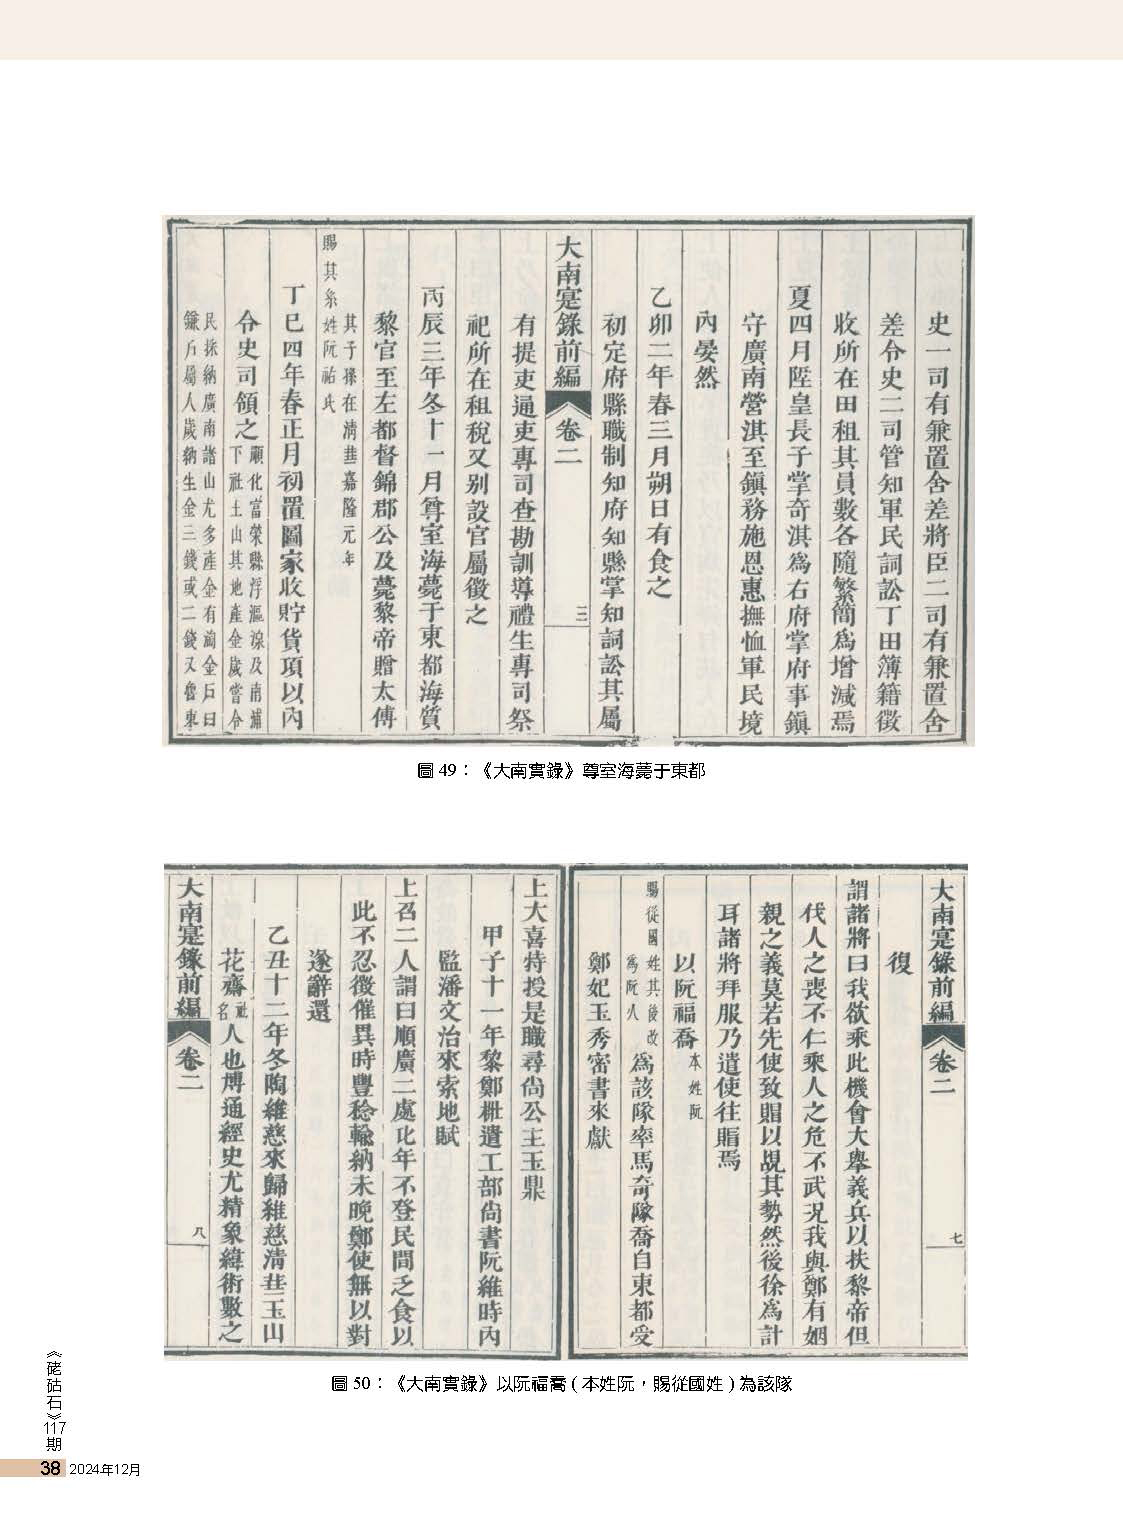 史一司有兼置舍差將臣二司有兼置舍
差令史二司管知軍民詞訟丁田簿籍徵
收所在田租其員數各隨繁簡為增減焉
夏四月陞皇長子掌奇淇為右府掌府事鎮
守廣南營淇至鎮務施恩惠撫恤軍民境
內晏然
乙卯二年春三月朔日有食之
初定府縣職制知府知縣掌知詞訟其屬
大南寔錄前編 卷二 三
有提吏通吏專司查勘訓導禮生專司祭
祀所在租稅又別設官屬徵之
丙辰三年冬十一月尊室海薨于東都海質
黎官至左都督錦郡公及薨黎帝贈太傅
其子孫在清華嘉隆元年
賜其系姓阮祐氏
丁巳四年春正月初置圖家收貯貨項以內
令史司領之順化富榮縣浮漚源及南浦
下社土山其地產金歲嘗令
民採納廣南諸山尤多產金有
鎌戶屬人歲納生金三錢或二錢又
圖 49：《大南實錄》尊室海薨于東都
大南寔錄前編 卷二 七
復
謂諸將曰我欲乘此機會大舉義兵以扶黎帝但
伐人之喪不仁乘人之危不武況我與鄭有姻
親之義莫若先使致賵以覘其勢然後徐為計
耳諸將拜服乃遣使往賵焉
以阮福喬本姓阮
賜從國姓其後改
為阮久
為該隊率馬奇隊喬自東都受
鄭妃玉秀密書來獻
上大喜特授是職尋尚公主玉鼎
甲子十一年黎鄭櫳遣工部尚書阮維時內
監潘文治來索地賦
上召二人謂曰順廣二處比年不登民間乏食以
此不忍徵催異時豐稔輸納未晚鄭使無以對
遂辭還
乙丑十二年冬陶維慈來歸維慈清華玉山
花齋社名人也博通經史尤精象緯術數之
大南寔錄前編 卷二 八
圖 50：《大南實錄》以阮福喬 ( 本姓阮，賜從國姓 ) 為該隊
《硓𥑮石》117期
38 2024年12月